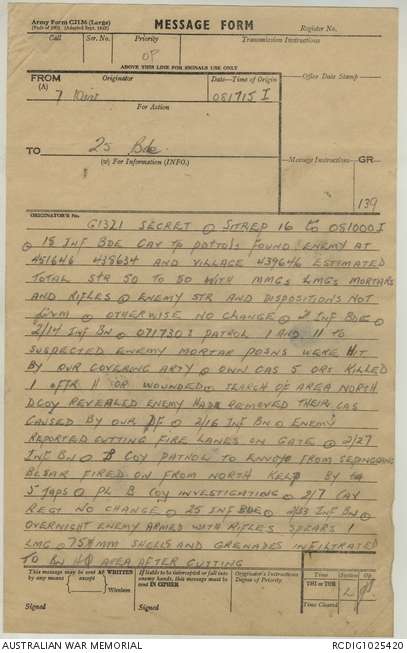 Army Form C2136 (Large)
MESSAGE FORM
Register No.
Call
Ser. No.
Priority
Transmission Instructions
OP
ABOVE THIS LINE FOR SIGNALS USE ONLY
FROM
(A)
Originator
Date—Time of Origin
Office Date Stamp
7 Div
081715 I
For Action
TO
25 Bde
(W) For Information (INFO.)
Message Instructions
GR
139
ORIGINATOR'S No.
G1321 SECRET @ SITREP 16 to 081000I
@ 18 INF BDE CAV TP PATROLS FOUND ENEMY AT
451646 438634 AND VILLAGE 439646 ESTIMATED
TOTAL STR 50 TO 50 WITH MMGs LMGs MORTARS
AND RIFLES @ ENEMY STR AND DISPOSITIONS NOT
@ OTHERWISE NO CHANGE @ INF BDE @
2/14 INF BN @ 071730I PATROL 1 AND 11 TO
SUSPECTED ENEMY MORTAR POSNS WERE HIT
BY OUR COVERING ARTY @ OWN CAS 5 ORS KILLED
1 OFFR 11 OR WOUNDED SEARCH OF AREA NORTH
D COY REVEALED ENEMY HAD REMOVED THEIR CAS
CAUSED BY OUR DF @ 2/16 INF BN @ ENEMY
REPORTED CUTTING FIRE LANES ON GATE @ 2/27
INF BN @ B COY PATROL TO FROM SEPINGGANG
BESAR FIRED ON FROM NORTH BY
5 JAPS @ PL B COY INVESTIGATING @ 2/7 CAV
REGT NO CHANGE @ 25 INF BDE @ 2/33 INF BN @
OVERNIGHT ENEMY ARMED WITH RIFLES SPEARS 1
LMG @ 75 MM SHELLS AND GRENADES INFILTRATED
TO BN HQ AREA AFTER CUTTING
This message may be sent AS WRITTEN
by any means except Wireless
If liable to be intercepted or fall into
enemy hands, this message must be
sent IN CIPHER
Originator's Instructions
Degree of Priority
Time
System
Op.
THI or TOR
Time Cleared
Signed
Signed
AUSTRALIAN WAR MEMORIAL
RCDIG1025420